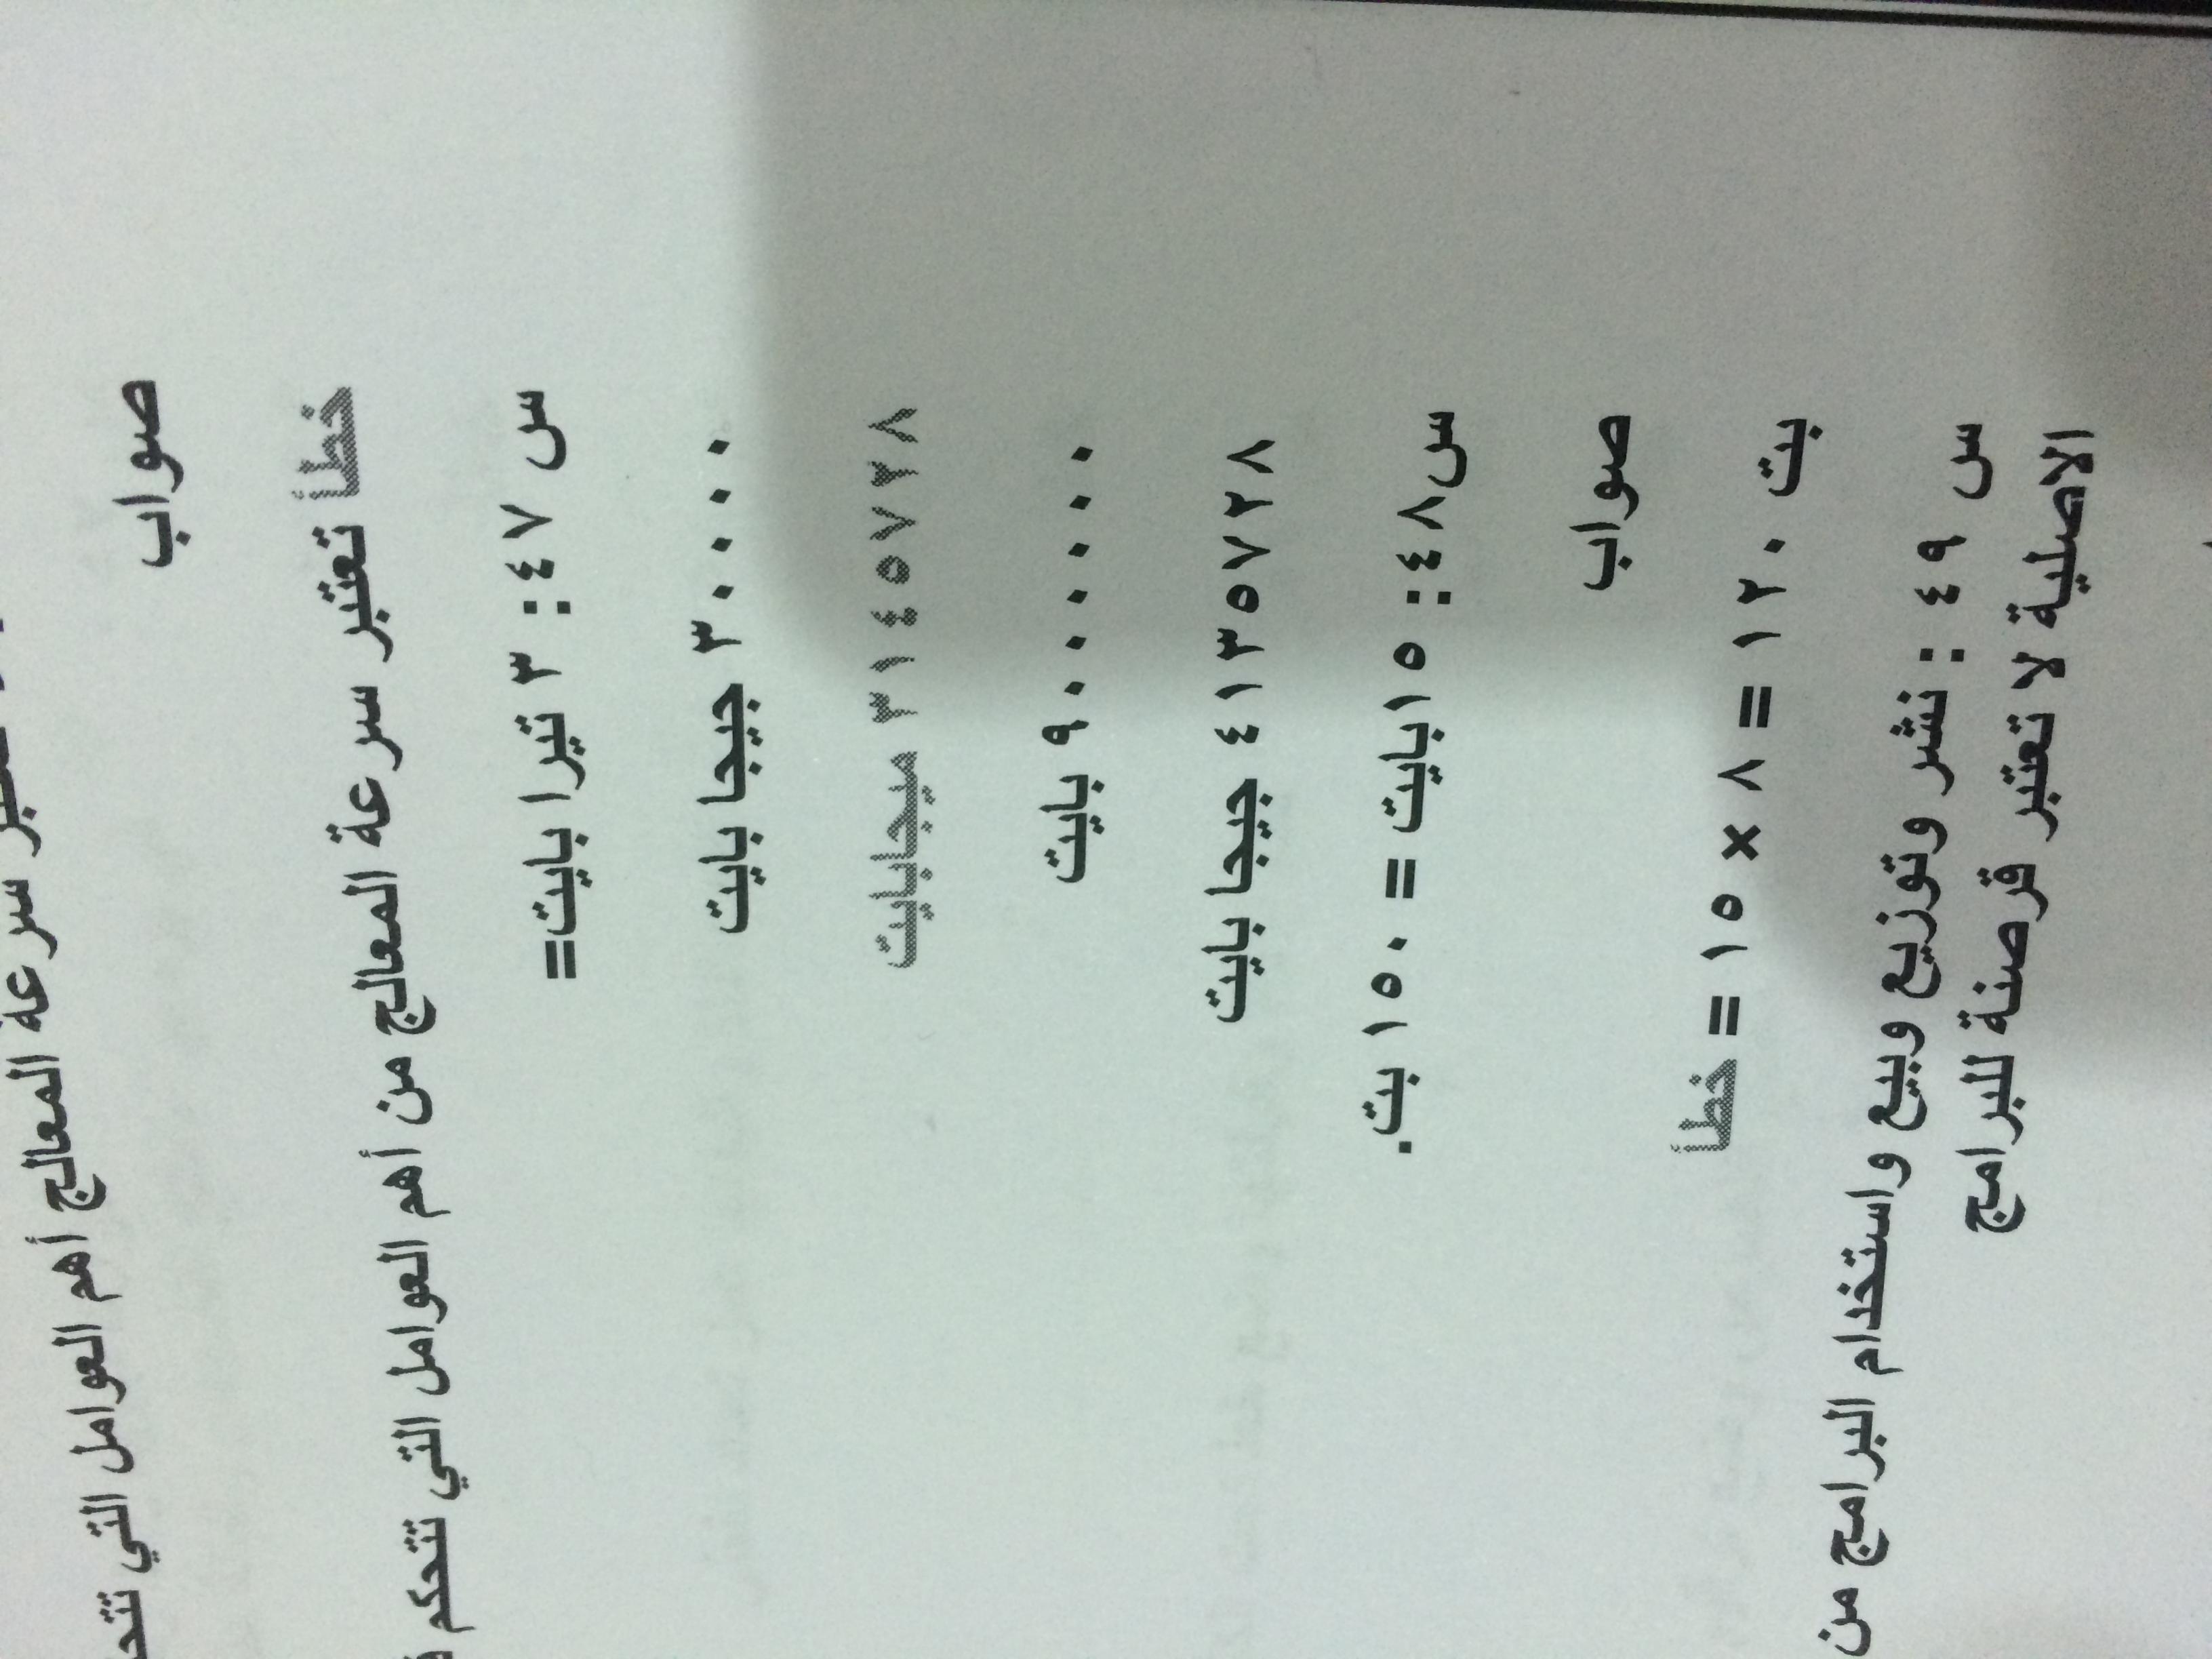 سرعة المعالج أهم العوامل التي
صواب
خطأ تعتبر سرعة المعالج من أهم العوامل التي تتحكم
س ٤٧ : ٣ تيرا بايت=
٣٠٠٠٠ جيجا بايت
٣١٤٥٧٢٨ ميجابايت
٩٠٠٠٠٠٠ بايت
٤١٣٥٧٢٨ جيجا بايت
س٤٨ : ١٥بايت = ١٥٠ بت.
صواب
خطأ = ١٥ × ٨ = ١٢٠ بت
س ٤٩ : نشر وتوزيع وبيع واستخدام البرامج من
الاصلية لا تعتبر قرصنة للبرامج